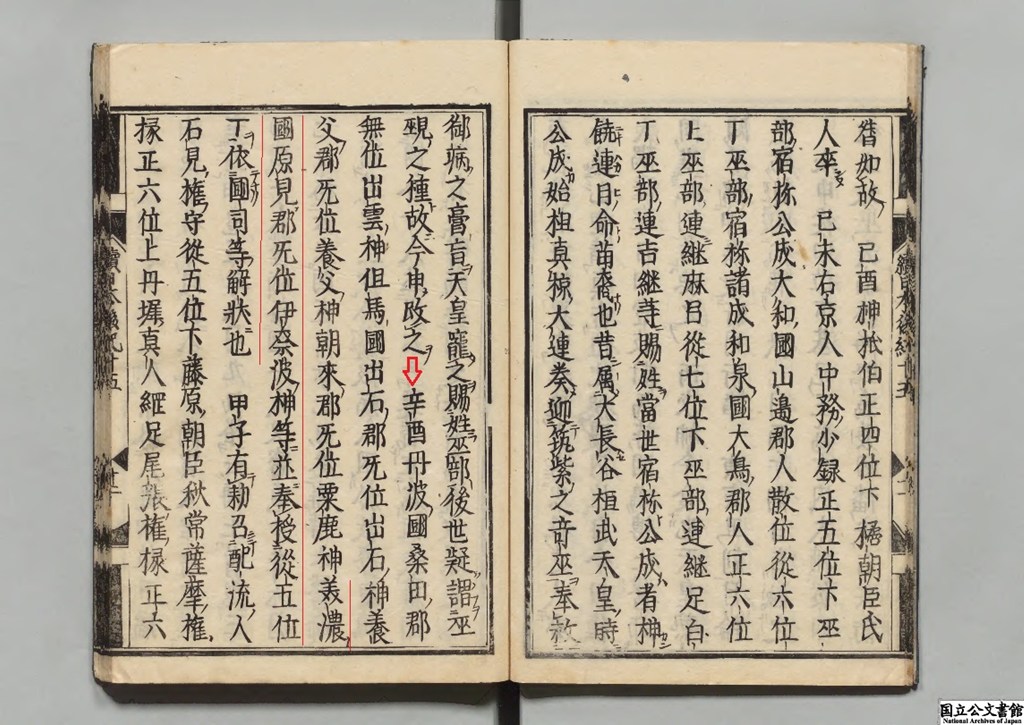 耆如故 己酉神祇伯正四位下橘朝臣氏
人卒 己未右京人中務少録正五位下巫
部宿祢公成大和國山邊郡人散位從六位
丁巫部宿祢諸成和泉國大鳥郡人正六位
上巫部連継麻呂從七位下巫部連継足白
丁巫部連吉継等賜姓當世宿祢公成者神
饒速日命苗裔也昔属大長谷桓武天皇時
公成始祖真椋大連奏迎筑紫之奇巫奉救
御病之膏肓天皇寵之賜姓巫部後世疑謂巫
覡之種故今申改之 辛酉丹波國桑田郡
無位出雲神但馬國出石郡死位出石神養
父郡死位養父神朝來郡死位粟鹿神美濃
國原見郡死位伊奈波神等並奉授從五位
丁依國司等解状也 甲子有勅召配流人
石見権守從五位下藤原朝臣秋常薩摩権
掾正六位上丹墀真人縄足尾張権掾正六
續日本後紀十五
國立公文書館
National Archives of Japan